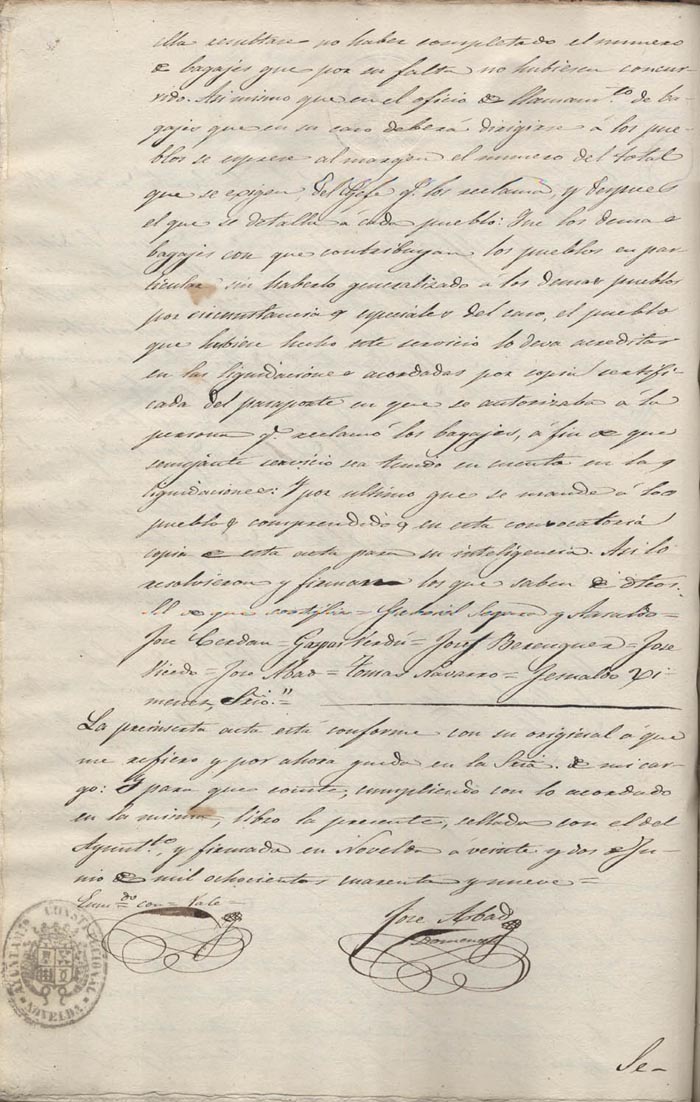 ella resultare no haber completado el numero
de bagajes que por su falta no hubiesen concur-
rido. Asi mismo que en el oficio de llamam.to de ba-
gajes que en su caso deberá dirigirse á los pue-
blos se esprese al margen el numero del total
que se exigen, del Gefe q.e los reclama, y despues
el que se detalla á cada pueblo: Que los demas
bagajes con que contribuyan los pueblos en par-
ticular sin haberlo generalizado á los demas pueblos
por circunstancias especiales del caso, el pueblo
que hubiere hecho este servicio lo deva acreditar
en las liquidaciones acordadas por copia certifi-
cada del pasaporte en que se autorizaba á la
persona q.e reclamó los bagajes, á fin de que
semejante servicio sea tenido en cuenta en las
liquidaciones: Y por ultimo que se mande á los
pueblos comprendidos en esta convocatoria
copia de esta acta para su inteligencia. Asi lo
resolvieron y firmaron los que saben de dhos.
de que certifico = Gabriel Segura y =
Jose Cerdan = Gaspar Verdú = Josef Berenguer = Jose
Vicedo = Jose Abad = Tomas Navarro = Xi-
menez Srio." =
La preinserta acta está conforme con su original á que
me refiero y por ahora queda en la Sria. de mi car-
go: Y para que conste, cumpliendo con lo acordado
en la misma, libro la presente, sellada con el del
Ayunt.to, y firmada en Novelda a veinte y dos de Ju-
nio de mil ochocientos cuarenta y nueve =
Enm.do con = Vale =
Jose Abad
Domenech
AYUNTAM.TO CONSTITUCIONAL
NOVELDA
Se-